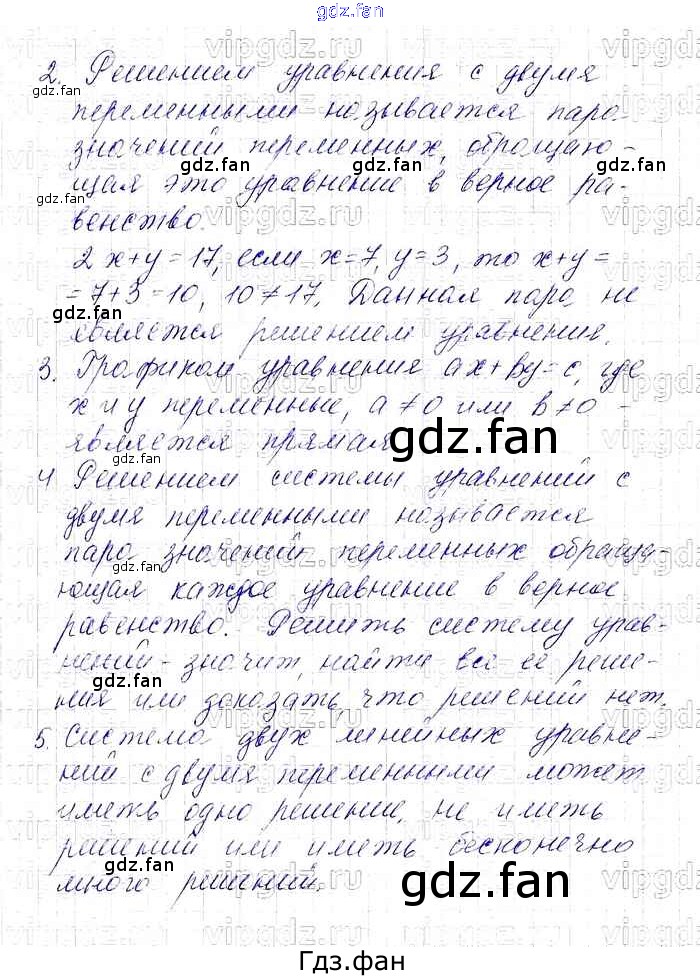 gdz.fan
2. Решением уравнения с двумя
переменными называется пара
значений переменных, обращаю-
щая это уравнение в верное ра-
венство.
2x+y=17, если x=7, y=3, то x+y=
=7+3=10, 10≠17, Данная пара не
является решением уравнения.
3. Графиком уравнения ax+by=c, где
x и y переменные, a≠0 или b≠0 -
является прямая
4 Решением системы уравнений с
двумя переменными называется
пара значений переменных обраща-
ющая каждое уравнение в верное
равенство. Решить систему урав-
нений - значит, найти все её реше-
ния или доказать, что решений нет.
5. Система двух линейных уравне-
ний с двумя переменными может
иметь одно решение, не иметь
решений или иметь бесконечно
много решений.
gdz.fan
Гдз.фан